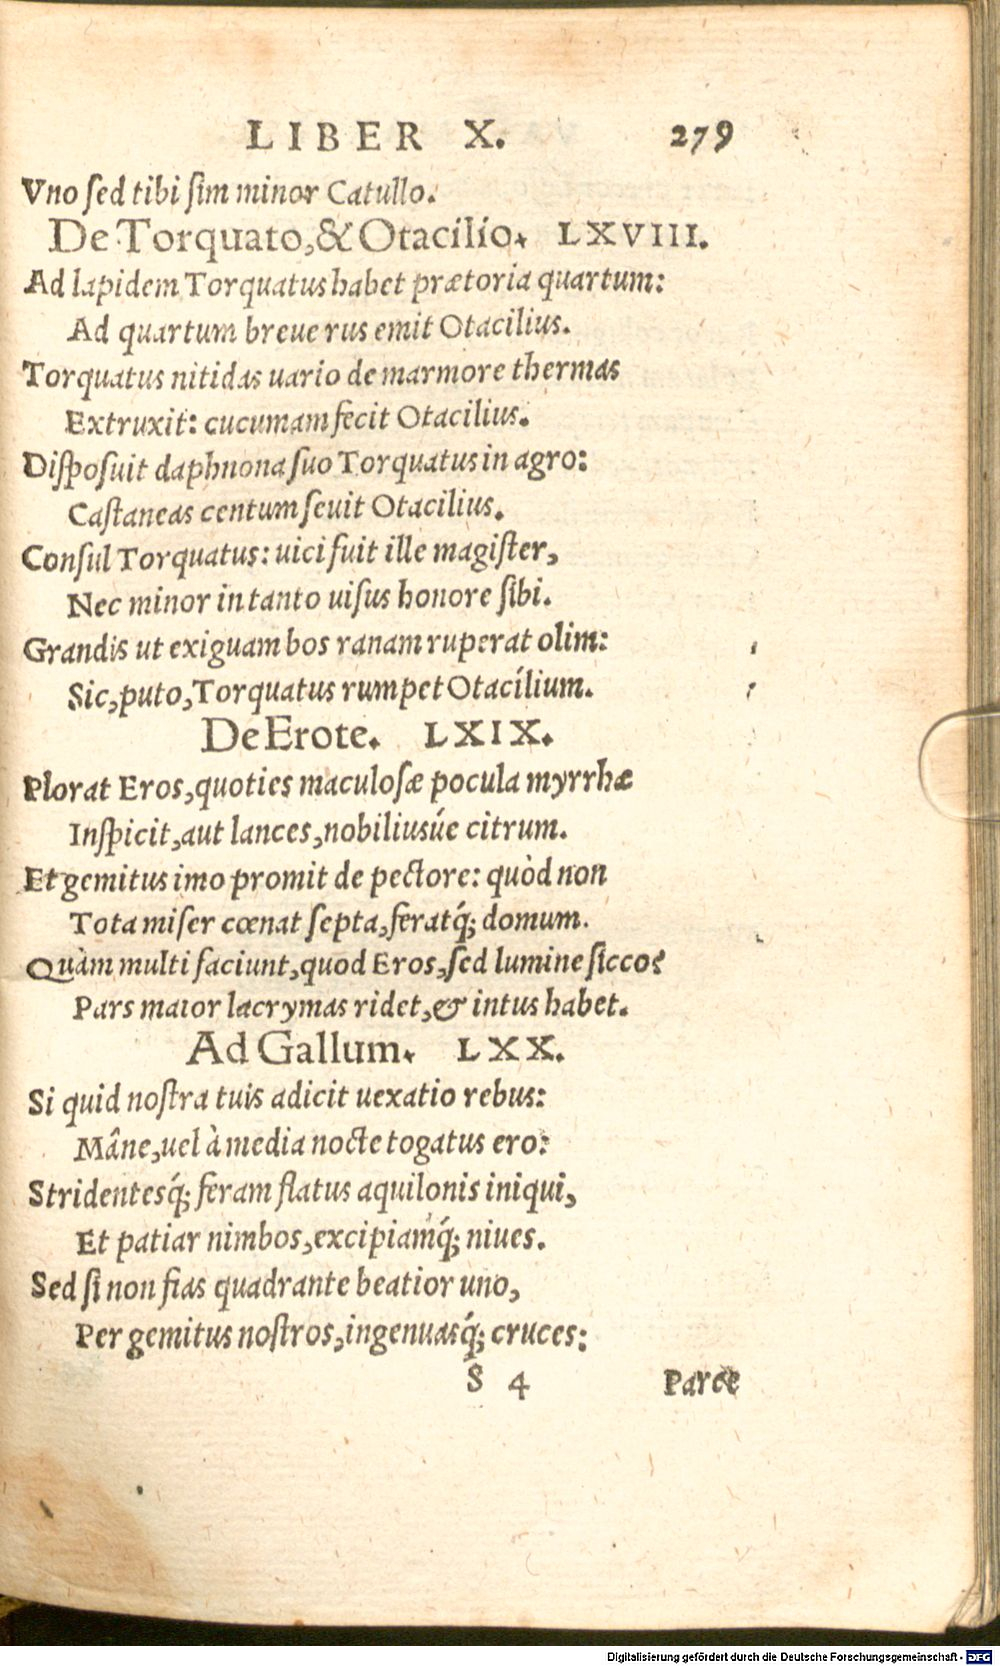 LIBER X. 279
Vno sed tibi sim minor Catullo.
De Torquato, & Otacilio. LXVIII.
Ad lapidem Torquatus habet prætoria quartum:
Ad quartum breue rus emit Otacilius.
Torquatus nitidas uario de marmore thermas
Extruxit: cucumam fecit Otacilius.
Disposuit daphnona suo Torquatus in agro:
Castaneas centum seuit Otacilius.
Consul Torquatus: uici fuit ille magister,
Nec minor in tanto uisus honore sibi.
Grandis ut exiguam bos ranam ruperat olim:
Sic, puto, Torquatus rumpet Otacílium.
De Erote. LXIX.
Plorat Eros, quoties maculosæ pocula myrrhæ
Inspicit, aut lances, nobiliusúe citrum.
Et gemitus imo promit de pectore: quòd non
Tota miser cœnat septa, feratq́; domum.
Quàm multi faciunt, quod Eros, sed lumine sicco?
Pars maior lacrymas ridet, & intus habet.
Ad Gallum. LXX.
Si quid nostra tuis adicit uexatio rebus:
Mâne, uel à media nocte togatus ero:
Stridentesq́; feram flatus aquilonis iniqui,
Et patiar nimbos, excipiamq́; niues.
Sed si non fias quadrante beatior uno,
Per gemitus nostros, ingenuasq́; cruces:
S 4 Parce
Digitalisierung gefördert durch die Deutsche Forschungsgemeinschaft - DFG